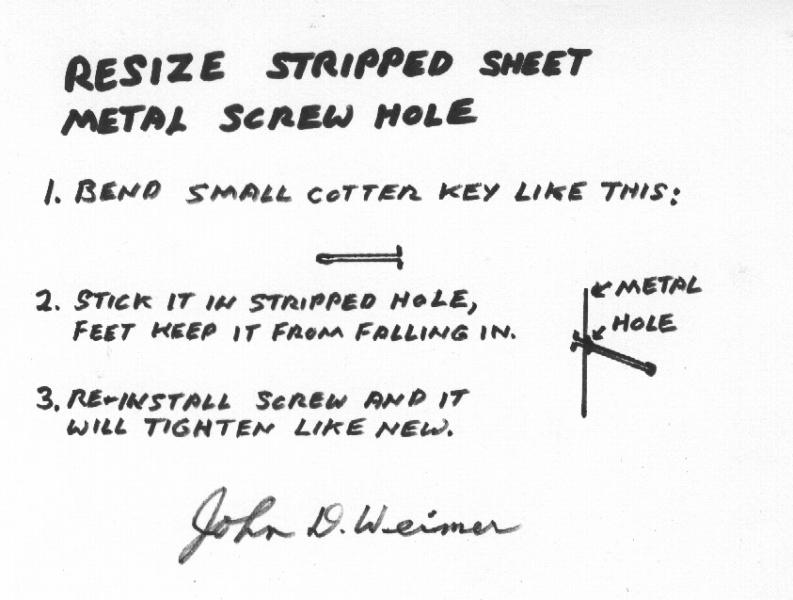 RESIZE STRIPPED SHEET
METAL SCREW HOLE
1. BEND SMALL COTTER KEY LIKE THIS:
2. STICK IT IN STRIPPED HOLE,
FEET KEEP IT FROM FALLING IN.
METAL
HOLE
3. RE-INSTALL SCREW AND IT
WILL TIGHTEN LIKE NEW.
John D. Weimer